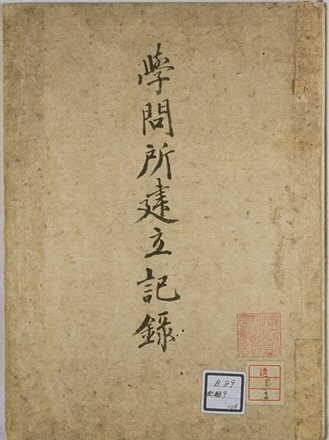 學問所建立記錄
B 89